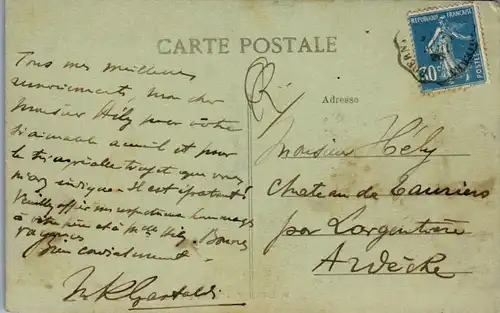 CARTE POSTALE
RÉPUBLIQUE FRANÇAISE
POSTES
Adresse
Tous mes meilleurs
mon cher
Monsieur Hély pour votre
aimable accueil et pour
le très agréable trajet que vous
m'avez indiqué. Il est épatant!
Veuillez offrir mes respectueux hommages
à votre mère et à Mlle Hély. Bonnes
vacances
Bien cordialement
Gastaldi
Monsieur Hély
Chateau de Tauriers
par Largentière
Ardèche